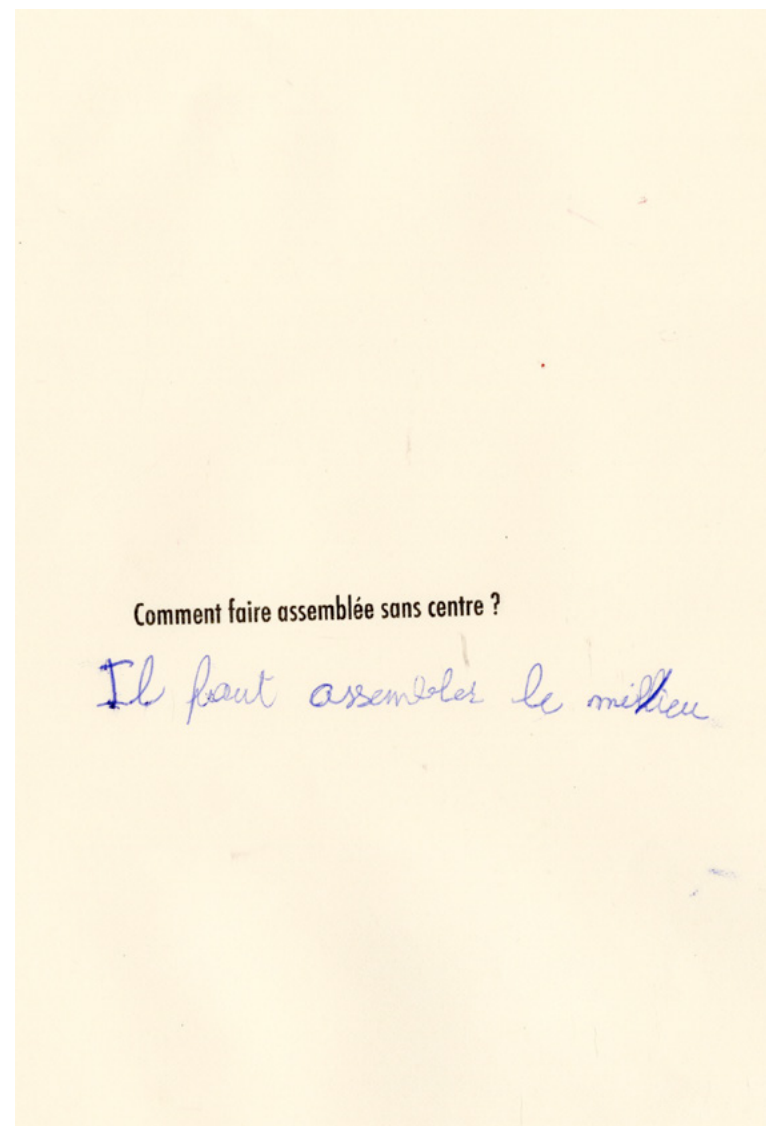 Comment faire assemblée sans centre ?
Il faut assembler le milieu